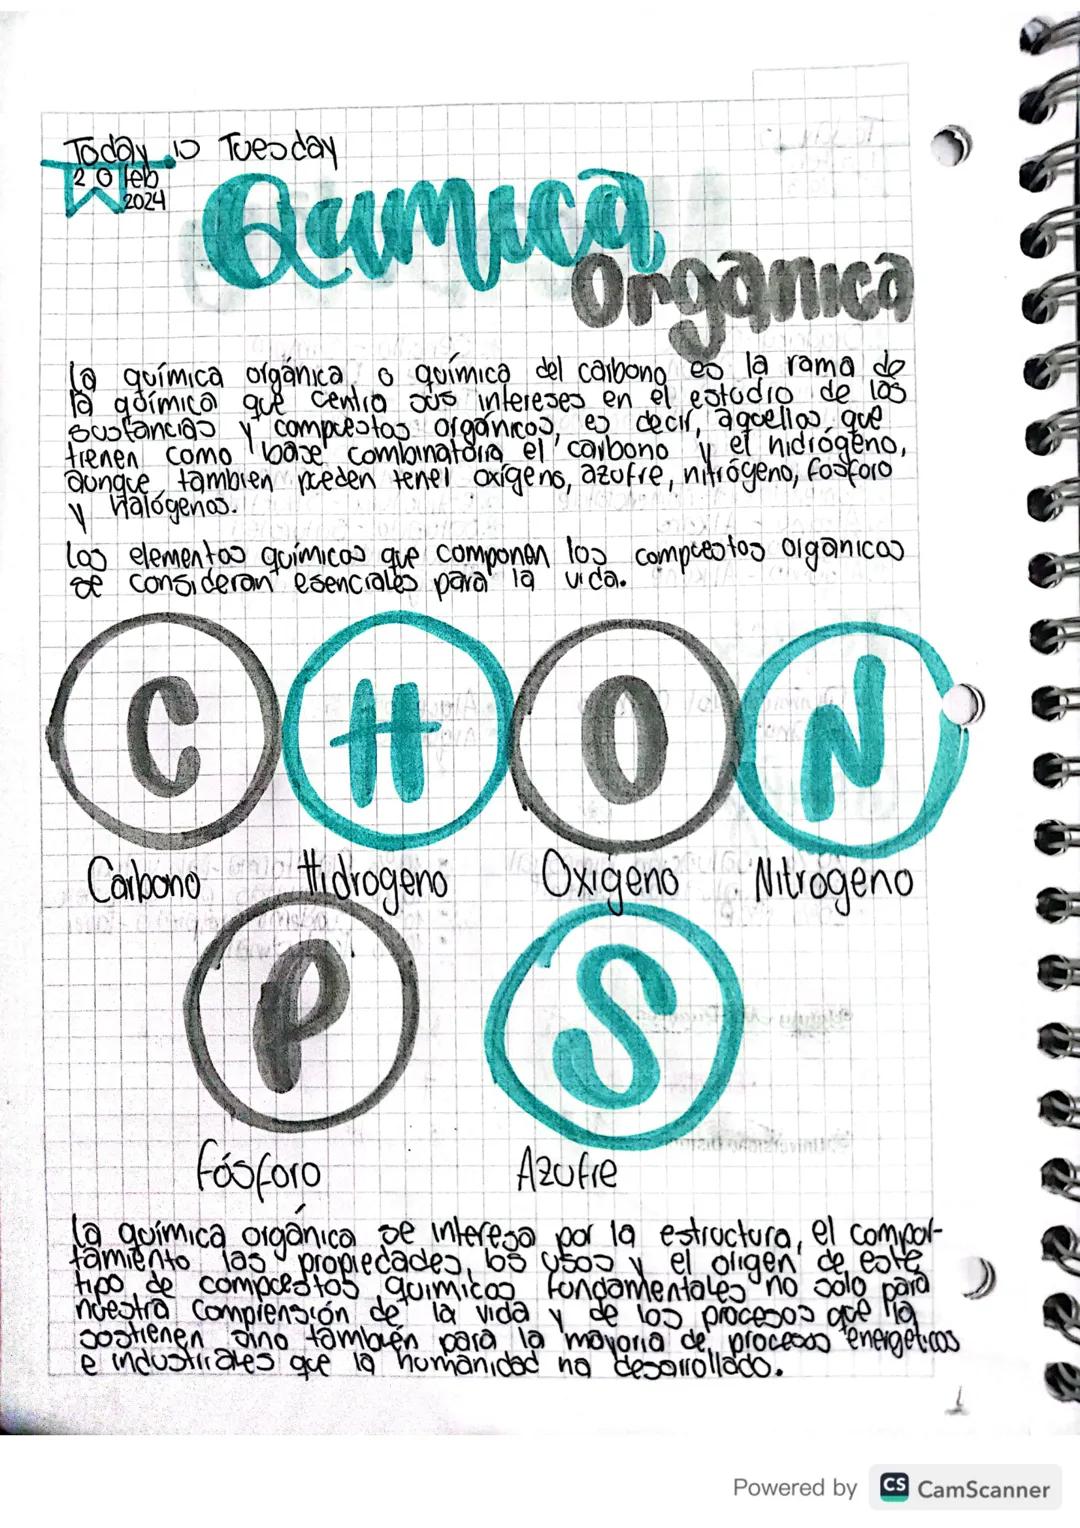 Today is Tuesday
20 feb
2024
Química
Orgánica
La química orgánica o química del carbono es la rama de
la química que centra sus intereses en el estudio de las
sustancias y compuestos orgánicos, es decir, aquellos que
tienen como base combinatoria el carbono y el hidrógeno,
aunque tambien pueden tener oxígeno, azufre, nitrógeno, fósforo
y halógenos.
Los elementos químicos que componen los compuestos organicos
se consideran esenciales para la vida.
C H O N
Carbono Hidrogeno Oxigeno Nitrógeno
P S
Fósforo Azufre
La química orgánica se interesa por la estructura, el compor-
tamiento las propiedades, los usos y el origen de este
tipo de compuestos quimicos fundamentales no solo para
nuestra comprensión de la vida y de los procesos que la
sostienen sino también para la mayoria de procesos energeticos
e industriales que la humanidad ha desarrollado.
1
Powered by CS CamScanner